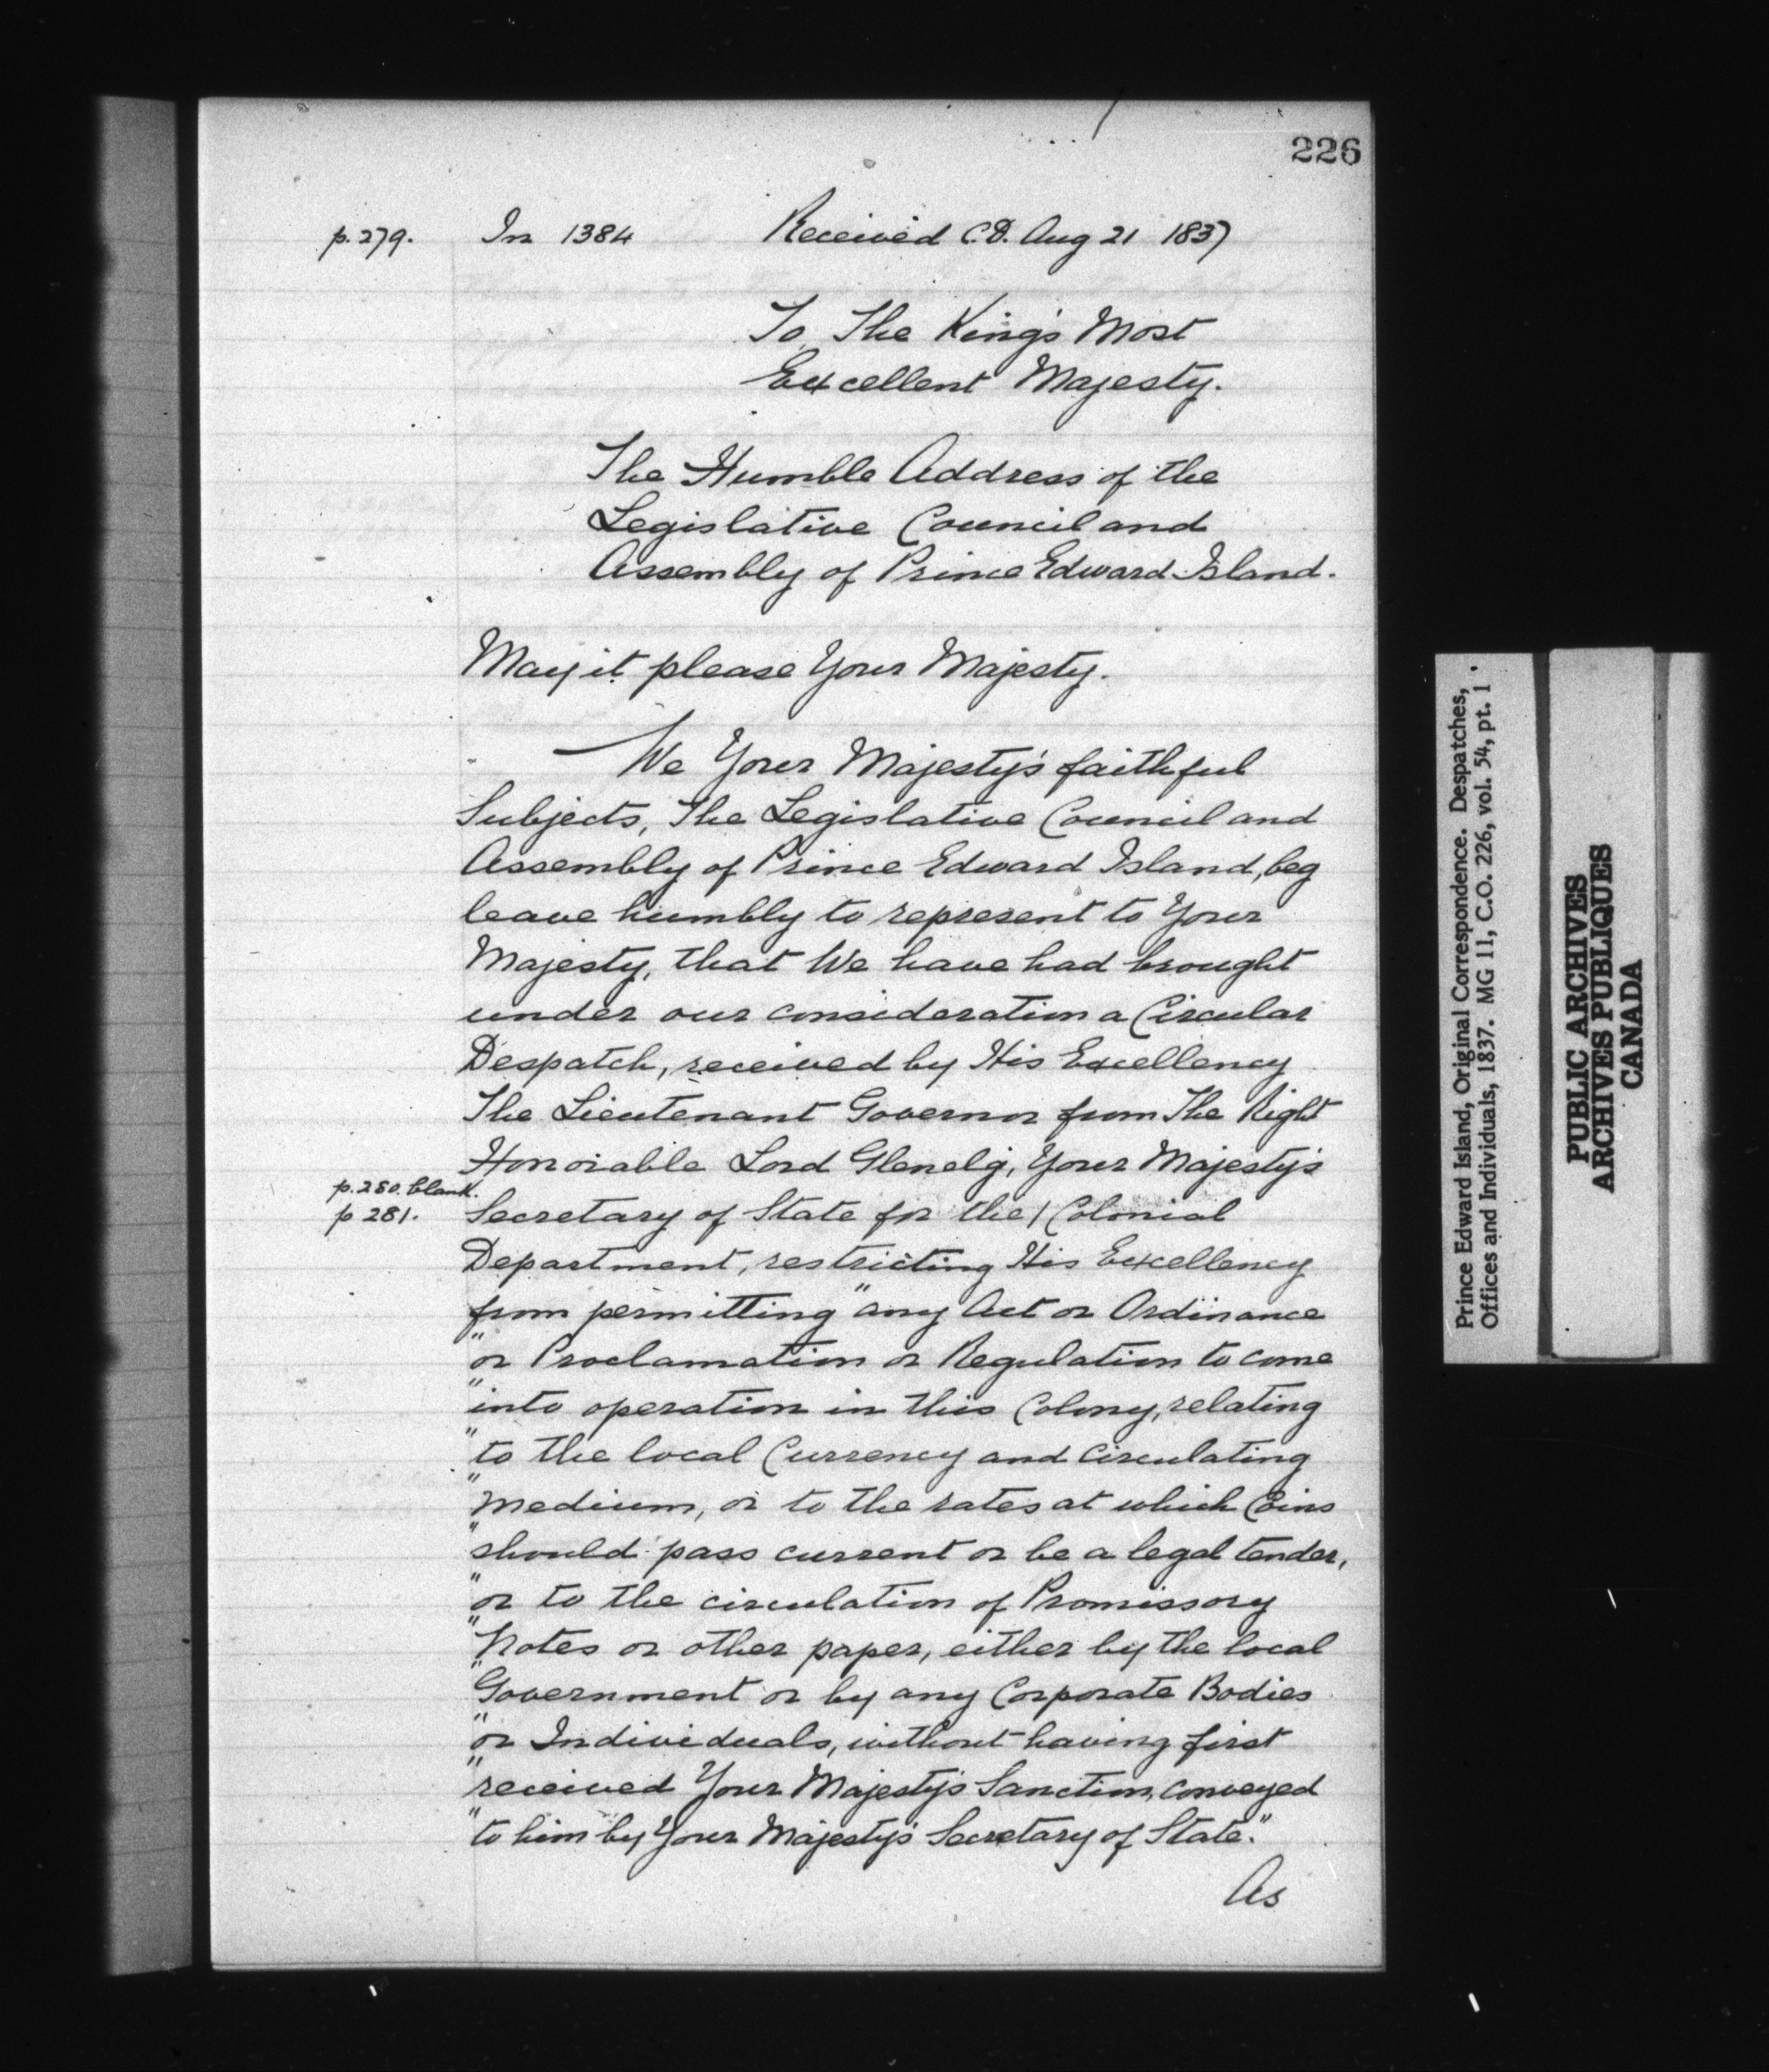 226
p. 279. In 1384 Received C.D. Aug 21 1837
To The King's Most
Excellent Majesty.
The Humble Address of the
Legislative Council and
Assembly of Prince Edward Island.
May it please Your Majesty.
We Your Majesty's faithful
Subjects, The Legislative Council and
Assembly of Prince Edward Island, beg
leave humbly to represent to Your
Majesty, that We have had brought
under our consideration a Circular
Despatch, received by His Excellency
The Lieutenant Governor from The Right
Honorable Lord Glenelg, Your Majesty's
p. 280. blank.
p 281. Secretary of State for the / Colonial
Department, restricting His Excellency
from permitting "any Act or Ordinance
"or Proclamation or Regulation to come
"into operation in this Colony, relating
"to the local Currency and circulating
"medium, or to the rates at which Coins
"should pass current or be a legal tender,
"or to the circulation of Promissory
"Notes or other paper, either by the local
"Government or by any Corporate Bodies
"or Individuals, without having first
"received Your Majesty's Sanction, conveyed
"to him by Your Majesty's Secretary of State."
As
Prince Edward Island, Original Correspondence. Despatches,
Offices and Individuals, 1837. MG 11, C.O. 226, vol. 54, pt. 1
PUBLIC ARCHIVES
ARCHIVES PUBLIQUES
CANADA